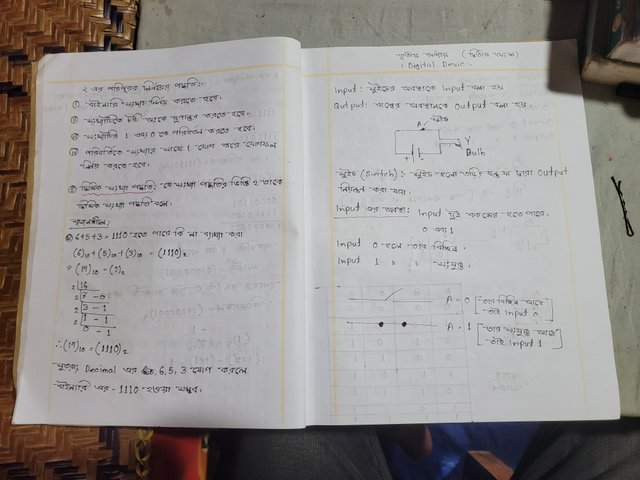 ২ এর পরিপূরক নির্ণয়ের পদ্ধতি:-
① বাইনারি সংখ্যা নির্ণয় করতে হবে।
② সংখ্যাটিকে ৮টি অংকে রূপান্তর করতে হবে।
③ সংখ্যাটির 1 এবং 0 কে পরিবর্তন করতে হবে।
④ পরিবর্তিত সংখ্যার সাথে 1 যোগ করে যোগফল
নির্ণয় করতে হবে।
দ্বিমিক সংখ্যা পদ্ধতি: যে সংখ্যা পদ্ধতির ভিত্তি 2 তাকে
দ্বিমিক সংখ্যা পদ্ধতি বলে।
সৃজনশীল:
6+5+3 = 1110 হতে পারে কি না ব্যাখ্যা করা
(6)₁₀ + (5)₁₀ + (3)₁₀ = (1110)₂
(14)₁₀ = (?)₂
2
2 7 - 0
2 3 - 1
2 1 - 1
0 - 1
∴ (14)₁₀ = (1110)₂
সুতরাং Decimal এর 6, 5, 3 যোগ করলে
বাইনারি এর 1110 হওয়া সম্ভব।
তৃতীয় অধ্যায় (দ্বিতীয় অংশ)
Digital Device:
Input: সুইচের অবস্থাকে Input বলা হয়
Output: বাল্বের অবস্থানকে Output বলা হয়।
সুইচ
A
Y
Bulb
+
সুইচ (Switch): সুইচ হলো যন্ত্র যা দ্বারা Output
নিয়ন্ত্রণ করা যায়।
Input এর অবস্থা: Input দুই রকমের হতে পারে।
0 এবং 1
Input 0 হলে তার বিচ্ছিন্ন
Input 1 " " সংযুক্ত
A = 0 [তার বিচ্ছিন্ন আছে
তাই Input 0]
A = 1 [তার সংযুক্ত আছে
তাই Input 1]